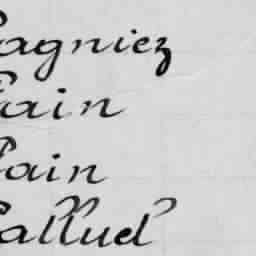 agniez
ain
ain
alluel